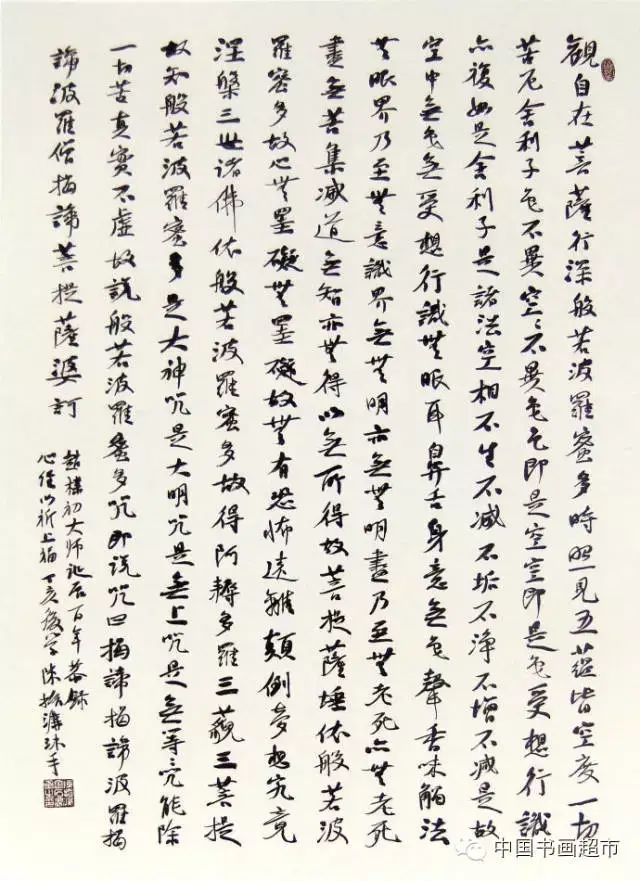 觀自在菩薩行深般若波羅蜜多時照見五蘊皆空度一切
苦厄舍利子色不異空〻不異色色即是空空即是色受想行識
亦復如是舍利子是諸法空相不生不滅不垢不淨不增不減是故
空中無色無受想行識無眼耳鼻舌身意無色聲香味觸法
無眼界乃至無意識界無無明亦無無明盡乃至無老死亦無老死
盡無苦集滅道無智亦無得以無所得故菩提薩埵依般若波
羅蜜多故心無罣礙無罣礙故無有恐怖遠離顛倒夢想究竟
涅槃三世諸佛依般若波羅蜜多故得阿耨多羅三藐三菩提
故知般若波羅蜜多是大神咒是大明咒是無上咒是無等咒能除
一切苦真實不虛故說般若波羅蜜多咒即說咒曰揭諦揭諦波羅揭
諦波羅僧揭諦菩提薩婆訶
趙樸初大師誕辰百年恭錄
心經以祈上福丁亥後學陳振濂沐手
中国书画超市